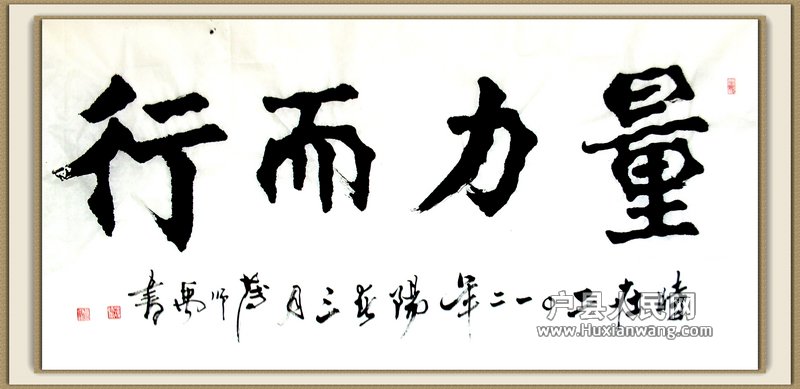 量力而行
時在二〇一二年陽春三月茂師禹書
户县人民网
www.Huxianwang.com